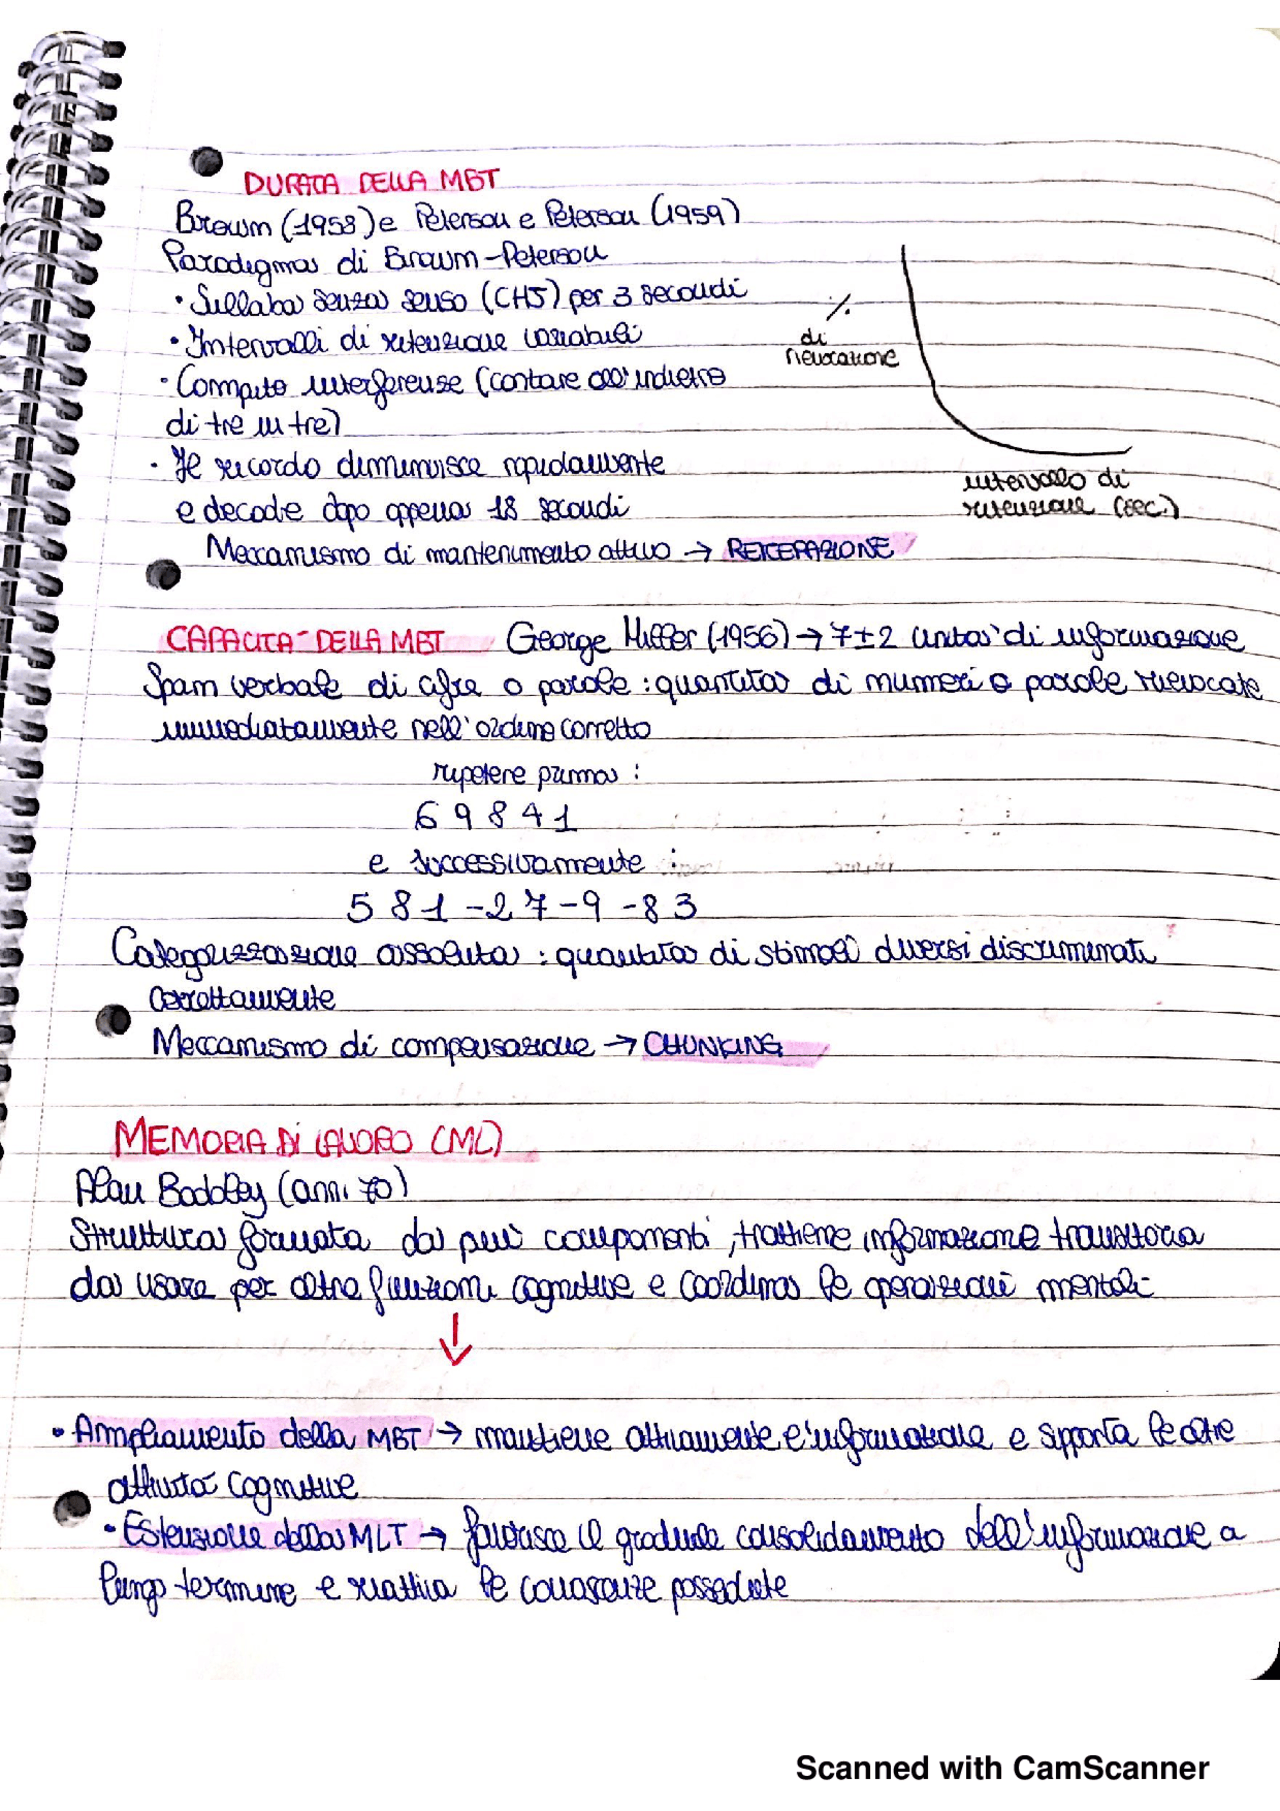 DURATA DELLA MBT
Brown (1958) e Peterson e Peterson (1959)
Paradigma di Brown-Peterson
• Sillaba senza senso (CHJ) per 3 secondi
• Intervalli di ritenzione variabili
• Compito interferense (contare all'indietro
di tre in tre)
• Il ricordo diminuisce rapidamente
e decade dopo appena 18 secondi
Meccanismo di mantenimento attivo → REITERAZIONE
%
di
rievocazione
intervallo di
ritenzione (sec.)
CAPACITA' DELLA MBT George Miller (1956) → 7±2 unita' di informazione
Span verbale di cifre o parole : quantita di numeri o parole rievocate
immediatamente nell'ordine corretto
ripetere prima :
6 9 8 4 1
e successivamente :
5 8 1 - 2 7 - 9 - 8 3
Categorizzazione assoluta : quantita di stimoli diversi discriminati
correttamente
Meccanismo di compensazione → CHUNKING
MEMORIA DI LAVORO (ML)
Alan Baddley (anni 70)
Struttura formata da piu' componenti, trattiene informazione transitoria
da usare per altre funzioni cognitive e coordina le operazioni mentali
↓
• Ampliamento della MBT → mantiene attivamente l'informazione e supporta le altre
attivita' cognitive
• Estensione della MLT → favorisce il graduale consolidamento dell'informazione a
lungo termine e riattiva le conoscenze possedute
Scanned with CamScanner